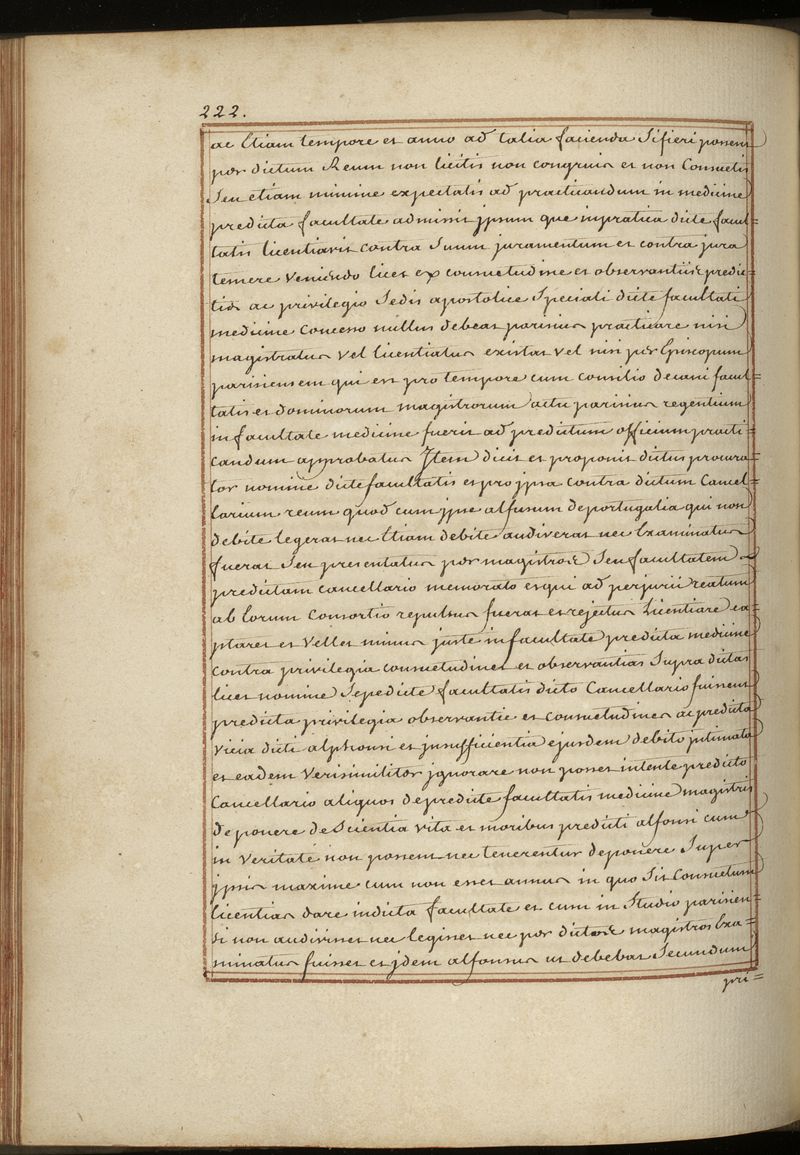 222.
ac Etiam tempore et anno ad talia facienda Si fieri possent
per dictum Reum non licitis non congruis et non Consuetis
Seu etiam minime expectatis ad practicandum in medicine
predicta facultate admisit jpsum que in pratica dicte facul=
tatis licentiavit contra Suum juramentum et contra jura
temere Veniendo licet ex consuetudine et observantiis predic=
tis ac privilegio Sedis apostolice Speciali dicte facultati
medicine Concesso nullus debeat parisius practicare nisi
magistratus vel licentiatus existat vel nisi per Episcopum
parisiensem qui est pro tempore cum consilio decani facul=
tatis et dominorum magistrorum actu parisius regentium
in facultate medicine fuerit ad predictum officium practi=
candum approbatus Jtem dicit et proponit dictus procura=
tor nomine dicte facultatis et pro jpsa contra dictum Cancel=
larium reum quod cum jpse alfusum de portugalia qui non
debite legerat nec Etiam debite audiverat nec Examinatus
fuerat Seu presentatus per magistros Seu facultatem
predictam cancellario memorato et qui ad perjurii reatum
ab Eorum Consortio repulsus fuerat et rejectus Licentiare ca=
ptaret et Vellet minus juste in facultate predicta medicine
contra privilegia consuetudines et observantias Supra dictas
licet nomine Sepedicte facultatis dicto Cancellario fuissent
predicta privilegia observantie et consuetudines ac predicta
vicia dicti alphonsi et jnsufficientia ejusdem debito jntimata
et eadem Verisimiliter jgnorare non posset intente predicto
Cancellario aliquos de predicte facultatis medicine magistris
deponere de Scientia vita et moribus predicti alfonsi cum
in veritate non possent nec tenerentur deponere Super
jpsis maxime cum non esset annus in quo Sit Consuetum
licentias dare in dicta facultate et cum in Studio parisien=
si non audivisset nec legisset nec per dictos magistros Exa=
minatus fuisset et jdem alfonsus ut debebat Secundum
pri=